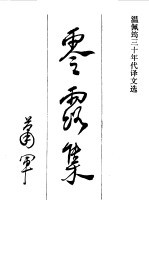 温佩筠三十年代译文选
零露集
萧军